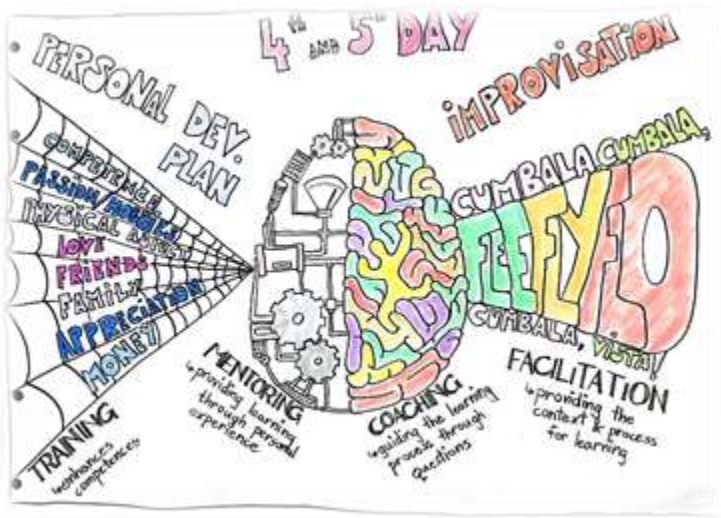 4TH AND 5TH DAY
PERSONAL DEV.
PLAN
IMPROVISATION
COMPETENCE
PASSION, HOBBIES,
PHYSICAL
LOVE
FRIENDS
FAMILY
APPRECIATION
MONEY
CUMBALA CUMBALA,
FLEEFLYFLO
CUMBALA, VISTA!
TRAINING
↳enhances
competences
MENTORING
↳providing learning
through personal
experience
COACHING
↳guiding the learning
process through
questions
FACILITATION
↳providing the
context & process
for learning